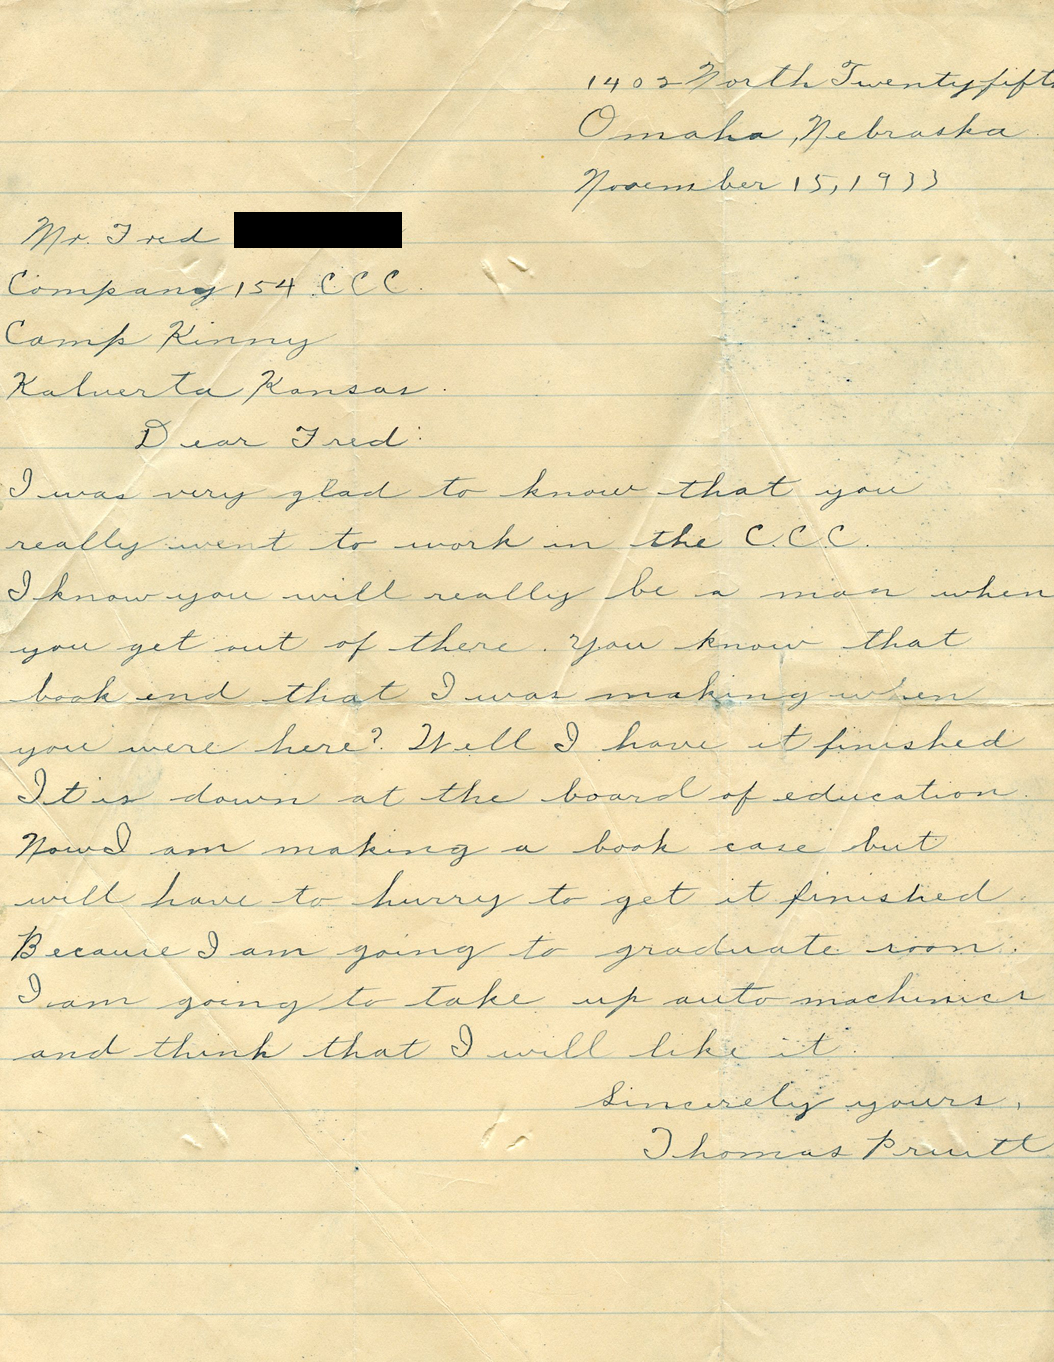 1402 North Twentyfifth
Omaha, Nebraska
November 15, 1933
Mr. Fred
Company 154 C C C.
Camp Kinny
Kalverta Kansas.
Dear Fred:
I was very glad to know that you
really went to work in the C.C.C.
I know you will really be a man when
you get out of there. You know that
book end that I was making when
you were here? Well I have it finished
It is down at the board of education.
Now I am making a book case but
will have to hurry to get it finished.
Because I am going to graduate soon.
I am going to take up auto machinics
and think that I will like it.
Sincerely yours,
Thomas Pruitt